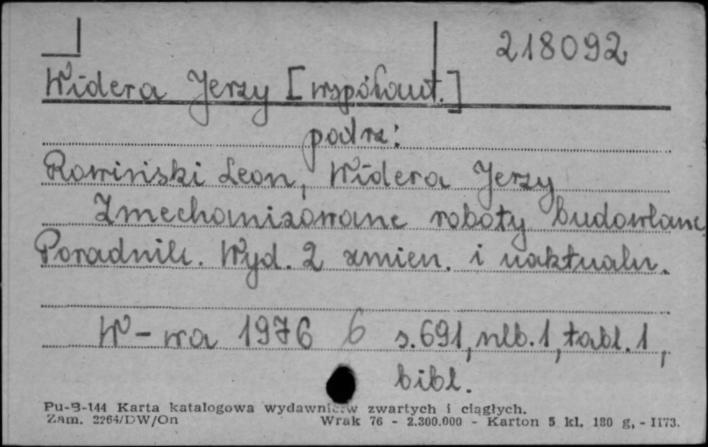 218092
Widera Jerzy [współaut.]
podrz:
Rowiński Leon, Widera Jerzy
Zmechanizowane roboty budowlane
Poradnik. Wyd. 2 zmien. i uaktualn.
W-wa 1976 6 s.691, nlb.1, tabl.1,
bibl.
Pu-B-144 Karta katalogowa wydawnictw zwartych i ciągłych.
Zam. 2264/DW/On Wrak 76 - 2.300.000 - Karton 5 kl. 180 g. - 1173.